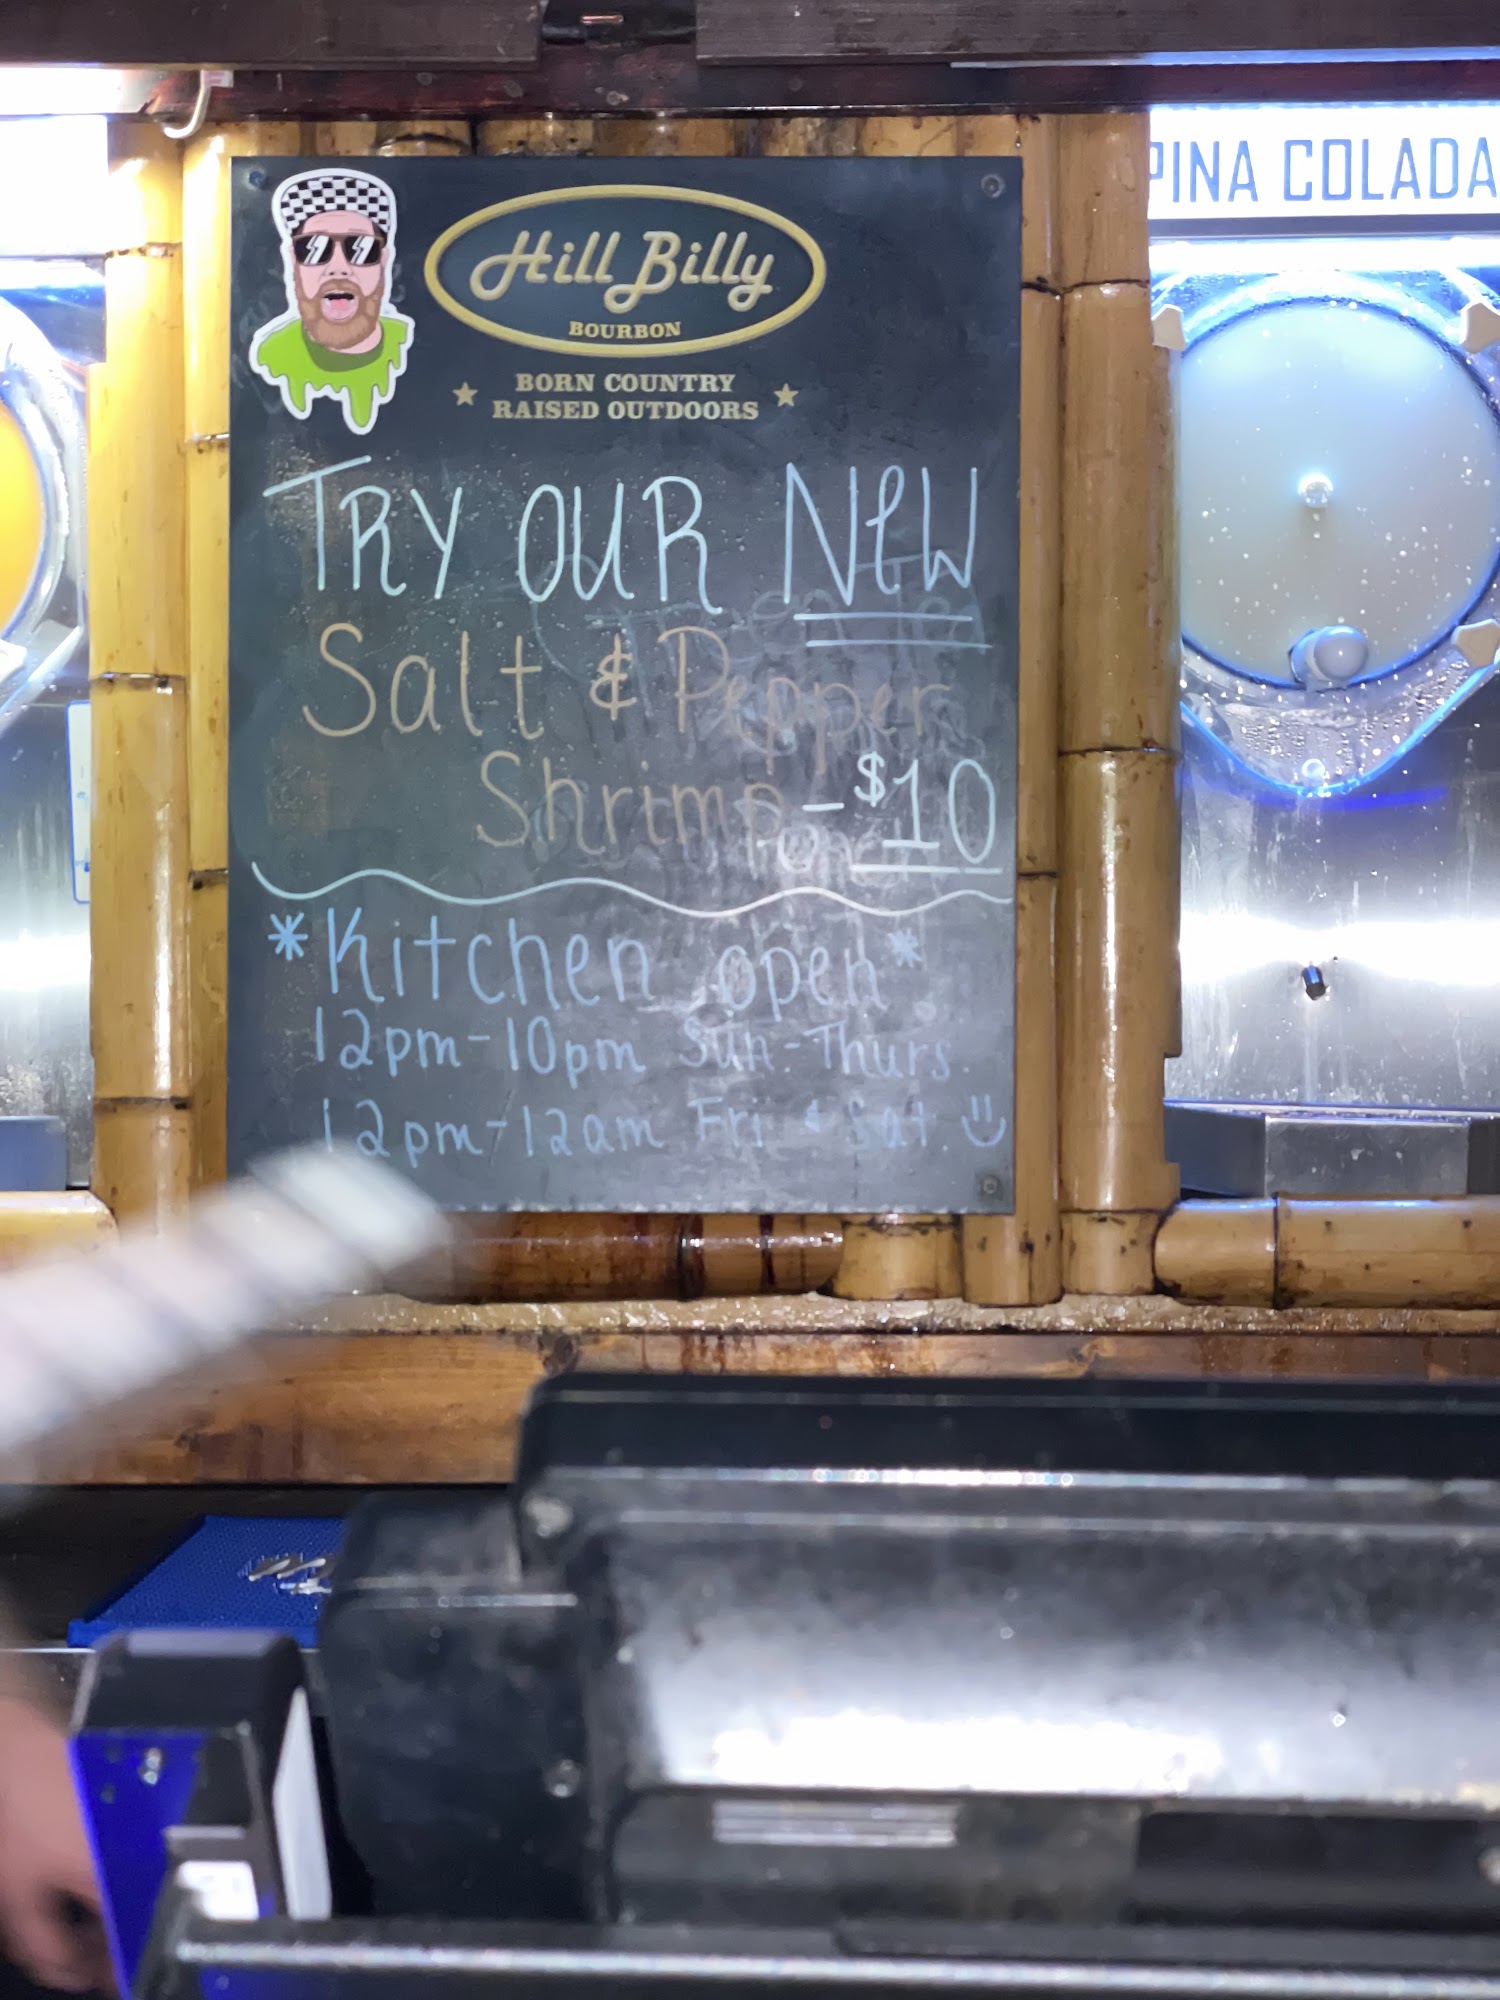 PINA COLADA
Hill Billy
BOURBON
BORN COUNTRY
RAISED OUTDOORS
TRY OUR NeW
Salt & Pepper
Shrimp - $10
*Kitchen open*
12pm-10pm Sun-Thurs.
12pm-12am Fri & Sat.